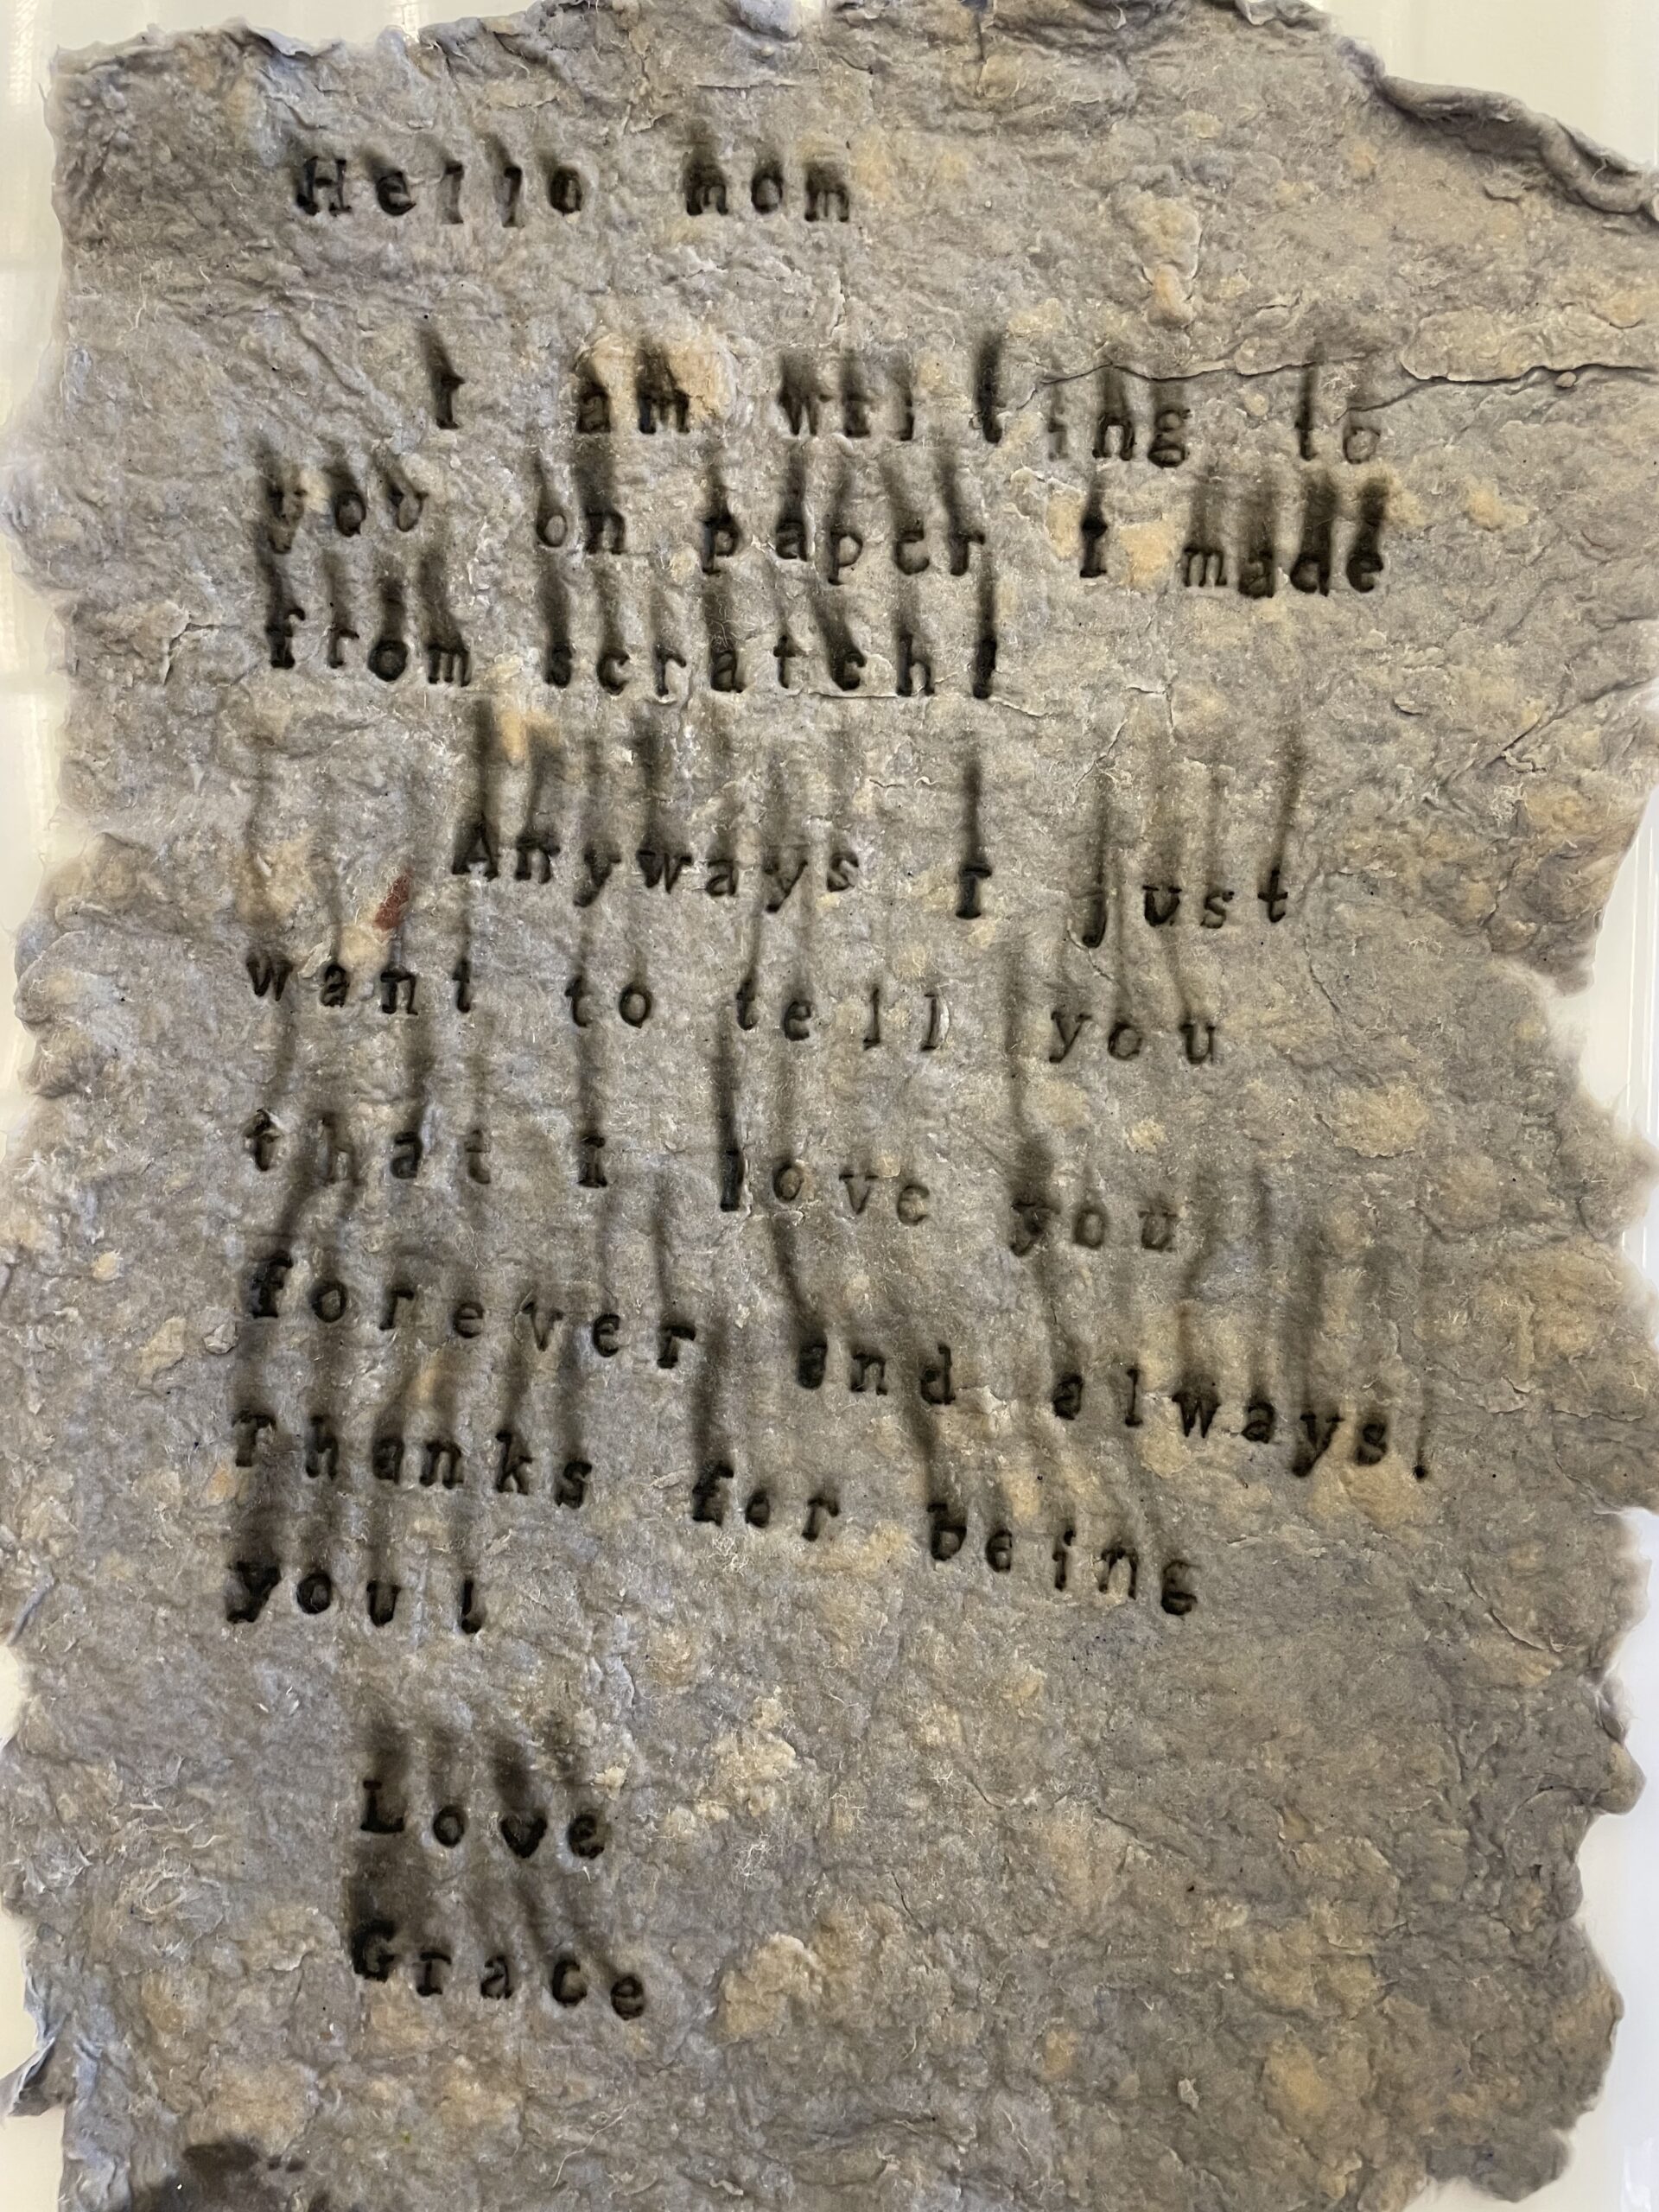 Hello mom
I am writing to
you on paper I made
from scratch!
Anyways I just
want to tell you
that I love you
forever and always!
Thanks for being
you!
Love
Grace